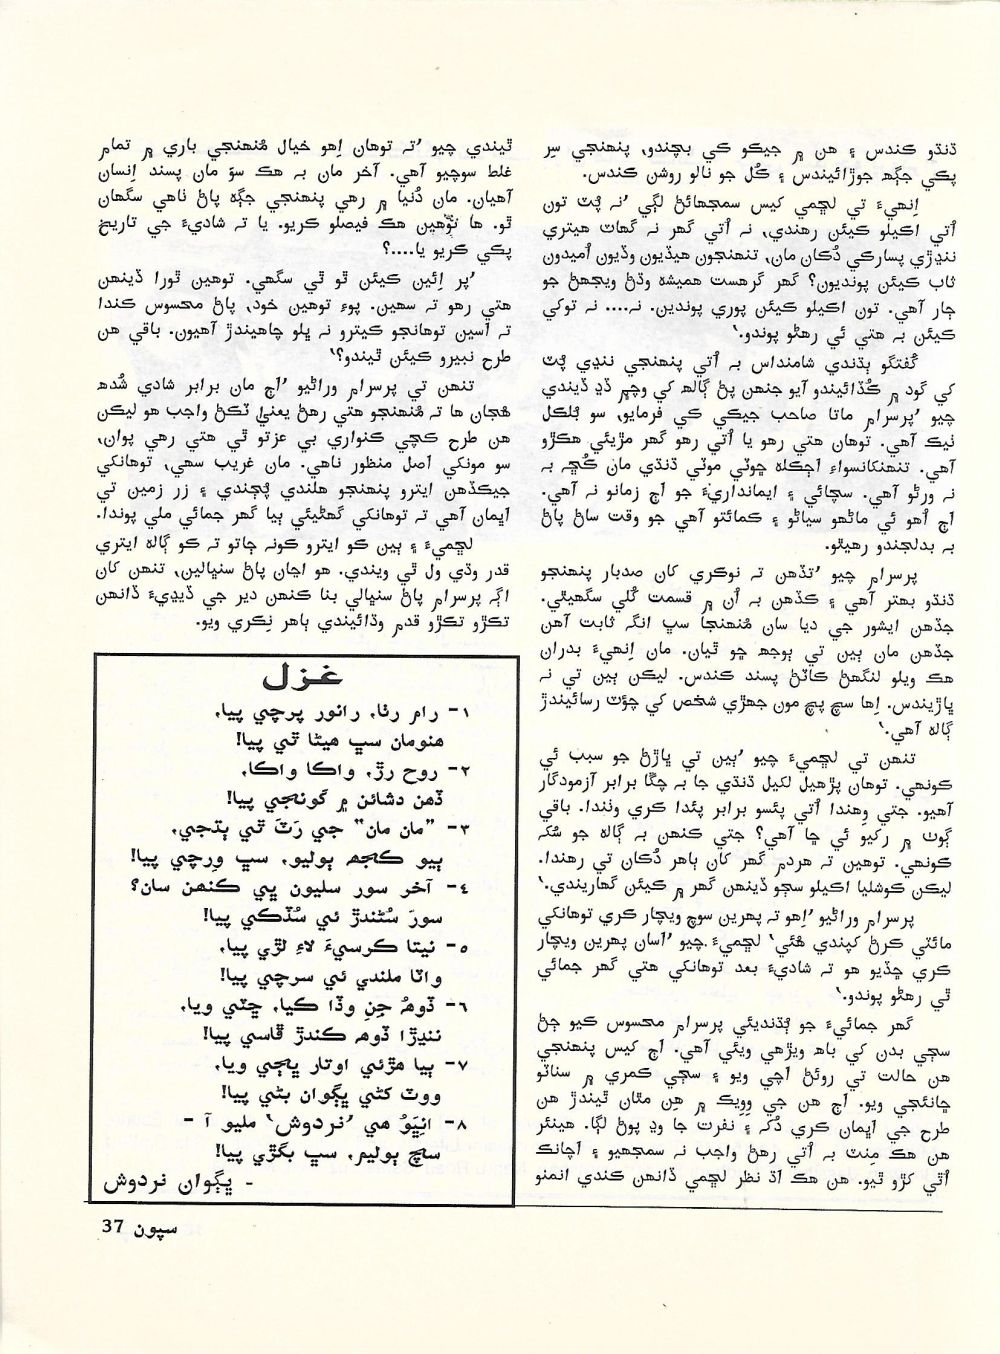 ڌنڌو ڪندس ۽ هن ۾ جيڪو ڪي بچندو، پنهنجي سِر
پڪي جڳھ جوڙائيندس ۽ ڪُل جو نالو روشن ڪندس.
اِنهيءَ تي لڇمي ڪيس سمجھائڻ لڳي ’نہ پُٽ تون
اُتي اڪيلو ڪيئن رهندي، نہ اُتي گهر نہ گهاٽ هيتري
ننڍڙي پسارڪي دُڪان مان، تنهنجون هيڏيون وڏيون اُميدون
ثاب ڪيئن پونديون؟ گهر گرهست هميشہ وڌڻ ويجهڻ جو
ڄار آهي. تون اڪيلو ڪيئن پوري پوندين. نہ.... نہ توکي
ڪيئن بہ هتي ئي رهڻو پوندو.‘
گُفتگو ٻڌندي شامنداس بہ اُتي پنهنجي ننڍي پُٽ
کي گود ۾ ڪُڏائيندو آيو جنهن پڻ ڳالھ کي وچڙ ڏيندي
چيو ’پرسرام ماتا صاحب جيڪي ڪي فرمايو، سو بُلڪل
نيڪ آهي. توهان هتي رهو يا اُتي رهو گهر مڙيئي هڪڙو
آهي. تنهنڪانسواءِ اڄڪلہ ڇوٽي موٽي ڌنڌي مان ڪُڇ بہ
نہ ورڻو آهي. سچائي ۽ ايمانداريءَ جو اڄ زمانو نہ آهي.
اڄ اُهو ئي ماڻهو سياڻو ۽ ڪمائتو آهي جو وقت ساڻ پاڻ
بہ بدلجندو رهيٿو.
پرسرام چيو ’تڏهن تہ نوڪري کان صدبار پنهنجو
ڌنڌو بهتر آهي ۽ ڪڏهن بہ اُن ۾ قسمت کُلي سگهيٿي.
جڏهن ايشور جي ديا سان مُنهنجا سڀ انگہ ثابت آهن
جڏهن مان ٻين تي ٻوجھ ڇو ٿيان. مان اِنهيءَ بدران
هڪ ويلو لنگهڻ ڪاٽڻ پسند ڪندس. ليڪن ٻين تي نہ
ڀاڙيندس. اِها سچ پچ مون جهڙي شخص کي چوٽ رسائيندڙ
ڳالہ آهي.‘
تنهن تي لڇميءَ چيو ’ٻين تي ڀاڙڻ جو سبب ئي
ڪونهي. توهان پڙهيل لکيل ڌنڌي جا بہ چڱا برابر آزمودگار
آهيو. جتي وِهندا اُتي پئسو برابر پئدا ڪري وٺندا. باقي
ڳوٺ ۾ رکيو ئي ڇا آهي؟ جتي ڪنهن بہ ڳالہ جو سُک
ڪونهي. توهين تہ هردم گهر کان ٻاهر دُڪان تي رهندا.
ليڪن ڪوشليا اڪيلو سڄو ڏينهن گهر ۾ ڪيئن گهاريندي.‘
پرسرام وراڻيو ’اِهو تہ پهرين سوچ ويچار ڪري توهانکي
مائٽي ڪرڻ کپندي هُئي‘ لڇميءَ چيو ’اَسان پهرين ويچار
ڪري ڇڏيو هو تہ شاديءَ بعد توهانکي هتي گهر جمائي
ٿي رهڻو پوندو.‘
گهر جمائيءَ جو ٻُڌندئي پرسرام محسوس ڪيو ڄڻ
سڄي بدن کي باھ ويڙهي ويئي آهي. اڄ کيس پنهنجي
هن حالت تي روئڻ اچي ويو ۽ سڄي ڪمري ۾ سناٽو
ڇانئجي ويو. اڄ هن جي وِويڪ ۾ هِن مٿان ٿيندڙ هن
طرح جي اَپمان ڪري دُک ۽ نفرت جا وڍ پوڻ لڳا. هينئر
هن هڪ مِنٽ بہ اُتي رهڻ واجب نہ سمجهيو ۽ اَچانڪ
اُٿي کڙو ٿيو. هن هڪ اڌ نظر لڇمي ڏانهن ڪندي انمنو
ٿيندي چيو ’تہ توهان اِهو خيال مُنهنجي باري ۾ تمام
غلط سوچيو آهي. آخر مان بہ هڪ سوَ مان پسند اِنسان
آهيان. مان دُنيا ۾ رهي پنهنجي جڳہ پاڻ ٺاهي سگهان
ٿو. ها توهين هڪ فيصلو ڪريو. يا تہ شاديءَ جي تاريخ
پڪي ڪريو يا....؟
’پر اِئين ڪيئن ٿو ٿي سگهي. توهين ٿورا ڏينهن
هتي رهو تہ سهين. پوءِ توهين خود، پاڻ محسوس ڪندا
تہ اَسين توهانجو ڪيترو نہ ڀلو چاهيندڙ آهيون. باقي هن
طرح نبيرو ڪيئن ٿيندو؟‘
تنهن تي پرسرام وراڻيو ’اڄ مان برابر شادي شُدھ
هُجان ها تہ مُنهنجو هتي رهڻ يعنيٰ ٽڪڻ واجب هو ليڪن
هن طرح ڪچي ڪنواري بي عزتو ٿي هتي رهي پوان،
سو مونکي اَصل منظور ناهي. مان غريب سهي، توهانکي
جيڪڏهن ايترو پنهنجو هلندي پُڄندي ۽ زر زمين تي
اَڀمان آهي تہ توهانکي گهڻيئي ٻيا گهر جمائي ملي پوندا.
لڇميءَ ۽ ٻين کو ايترو ڪونہ ڄاتو تہ ڪو ڳالہ ايتري
قدر وڏي ول ٿي ويندي. هو اڃان پاڻ سنڀالين، تنهن کان
اڳ پرسرام پاڻ سنڀالي بنا ڪنهن دير جي ڏيڍيءَ ڏانهن
تڪڙو تڪڙو قدم وڌائيندي ٻاهر نِڪري ويو.
غزل
١- رام رٺا، رانور پرچي پيا،
هنومان سڀ هيڻا ٿي پيا!
٢- روح رڙ، واڪا واڪا،
ڏهن دشائن ۾ گونجي پيا!
٣- ”مان مان“ جي رَٽَ ٿي ٻڌجي،
ٻيو ڪجھ ٻوليو، سڀ وِرچي پيا!
٤- آخر سور سليون ڀي ڪنهن سان؟
سورَ سُڻندڙ ئي سُڏڪي پيا!
٥- نيتا ڪرسيءَ لاءِ لڙي پيا،
واٽا ملندي ئي سرچي پيا!
٦- ڏوھُ جِنِ وڏا ڪيا، ڇٽي ويا،
ننڍڙا ڏوھ ڪندڙ ڦاسي پيا!
٧- ٻيا مڙئي اوتار ڀڄي ويا،
ووٽ کڻي ڀڳوان بڻي پيا!
٨- انِڀَوُ هي ’نردوش‘ مليو آ -
سچ ٻوليم، سڀ بگڙي پيا!
- ڀڳوان نردوش
سپون 37